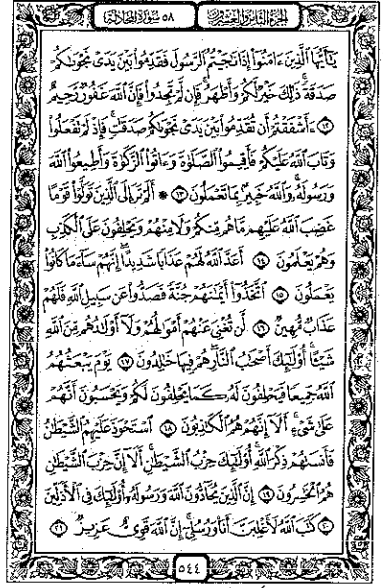 الجزء الثامن والعشرون ٥٨ سورة المجادلة
يَٰٓأَيُّهَا ٱلَّذِينَ ءَامَنُوٓا۟ إِذَا نَٰجَيْتُمُ ٱلرَّسُولَ فَقَدِّمُوا۟ بَيْنَ يَدَىْ نَجْوَىٰكُمْ
صَدَقَةً ۚ ذَٰلِكَ خَيْرٌ لَّكُمْ وَأَطْهَرُ ۚ فَإِن لَّمْ تَجِدُوا۟ فَإِنَّ ٱللَّهَ غَفُورٌ رَّحِيمٌ
١٢ ءَأَشْفَقْتُمْ أَن تُقَدِّمُوا۟ بَيْنَ يَدَىْ نَجْوَىٰكُمْ صَدَقَٰتٍ ۚ فَإِذْ لَمْ تَفْعَلُوا۟
وَتَابَ ٱللَّهُ عَلَيْكُمْ فَأَقِيمُوا۟ ٱلصَّلَوٰةَ وَءَاتُوا۟ ٱلزَّكَوٰةَ وَأَطِيعُوا۟ ٱللَّهَ
وَرَسُولَهُۥ ۚ وَٱللَّهُ خَبِيرٌۢ بِمَا تَعْمَلُونَ ١٣ ۞ أَلَمْ تَرَ إِلَى ٱلَّذِينَ تَوَلَّوْا۟ قَوْمًا
غَضِبَ ٱللَّهُ عَلَيْهِم مَّا هُم مِّنكُمْ وَلَا مِنْهُمْ وَيَحْلِفُونَ عَلَى ٱلْكَذِبِ
وَهُمْ يَعْلَمُونَ ١٤ أَعَدَّ ٱللَّهُ لَهُمْ عَذَابًا شَدِيدًا ۖ إِنَّهُمْ سَآءَ مَا كَانُوا۟
يَعْمَلُونَ ١٥ ٱتَّخَذُوٓا۟ أَيْمَٰنَهُمْ جُنَّةً فَصَدُّوا۟ عَن سَبِيلِ ٱللَّهِ فَلَهُمْ
عَذَابٌ مُّهِينٌ ١٦ لَّن تُغْنِىَ عَنْهُمْ أَمْوَٰلُهُمْ وَلَآ أَوْلَٰدُهُم مِّنَ ٱللَّهِ
شَيْـًٔا ۚ أُو۟لَٰٓئِكَ أَصْحَٰبُ ٱلنَّارِ ۖ هُمْ فِيهَا خَٰلِدُونَ ١٧ يَوْمَ يَبْعَثُهُمُ
ٱللَّهُ جَمِيعًا فَيَحْلِفُونَ لَهُۥ كَمَا يَحْلِفُونَ لَكُمْ ۖ وَيَحْسَبُونَ أَنَّهُمْ
عَلَىٰ شَىْءٍ ۚ أَلَآ إِنَّهُمْ هُمُ ٱلْكَٰذِبُونَ ١٨ ٱسْتَحْوَذَ عَلَيْهِمُ ٱلشَّيْطَٰنُ
فَأَنسَىٰهُمْ ذِكْرَ ٱللَّهِ ۚ أُو۟لَٰٓئِكَ حِزْبُ ٱلشَّيْطَٰنِ ۚ أَلَآ إِنَّ حِزْبَ ٱلشَّيْطَٰنِ
هُمُ ٱلْخَٰسِرُونَ ١٩ إِنَّ ٱلَّذِينَ يُحَآدُّونَ ٱللَّهَ وَرَسُولَهُۥٓ أُو۟لَٰٓئِكَ فِى ٱلْأَذَلِّينَ
٢٠ كَتَبَ ٱللَّهُ لَأَغْلِبَنَّ أَنَا۠ وَرُسُلِىٓ ۚ إِنَّ ٱللَّهَ قَوِىٌّ عَزِيزٌ ٢١
٥٤٤